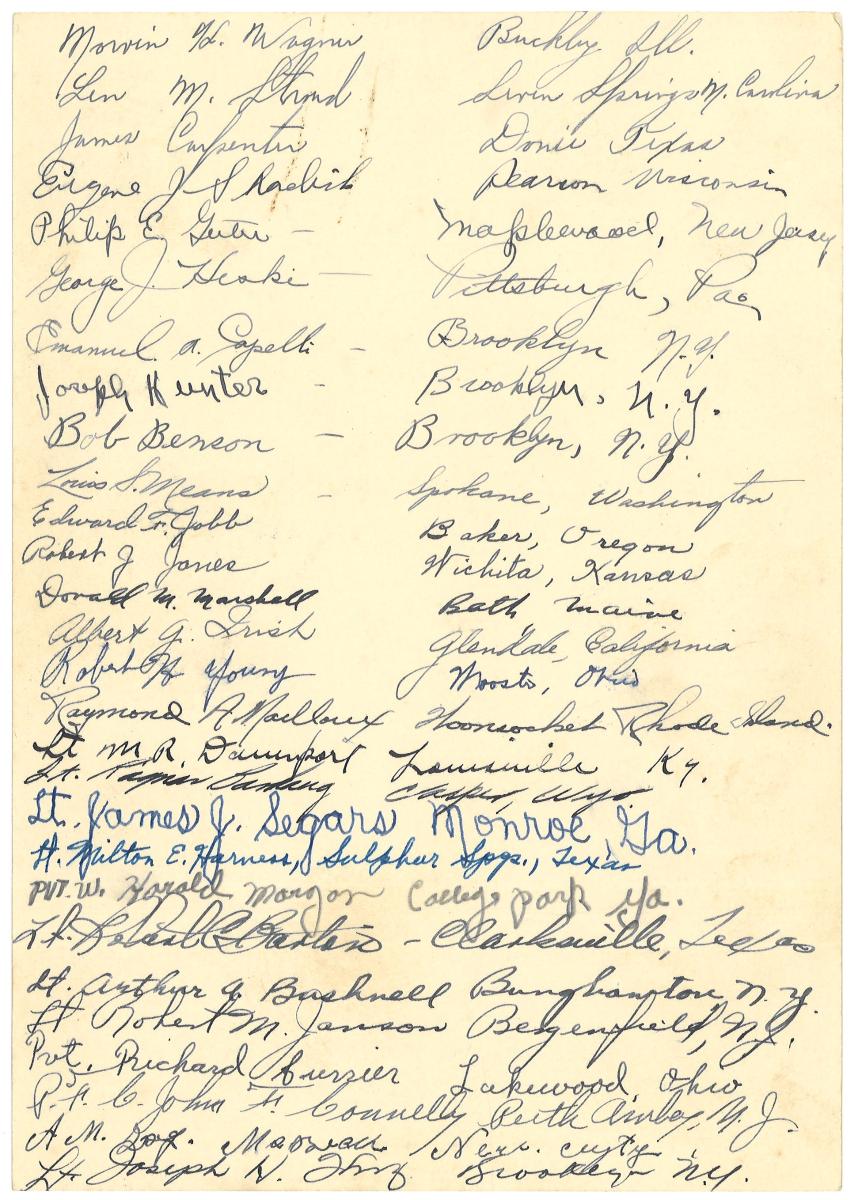 Morvin H. Wagner Buckley Ill.
Len M. Stroud Seven Springs N. Carolina
James Carpenter Donie Texas
Eugene J. S Pearson Wisconsin
Philip E. - Maplewood, New Jersey
George J. Heski - Pittsburgh, Pa.
Emanuel A. Capelli - Brooklyn N.Y.
Joseph Hunter - Brooklyn, N.Y.
Bob Benson - Brooklyn, N.Y.
Louis S. Means - Spokane, Washington
Edward F. Jobb Baker, Oregon
Robert J Jones Wichita, Kansas
Donald M. Marshall Bath Maine
Albert G. Irish Glendale, California
Robert Young Ohio
Raymond A Mailloux Woonsocket Rhode Island.
Lt M.R. Davenport Louisville Ky.
Lt. Casper, Wyo.
Lt. James J. Segars Monroe, Ga.
Lt. Milton E. Harness, Sulphur Spgs., Texas
Pvt. W. Harold Morgan College park Ga.
Lt. Robert C. Barton - Clarksville, Texas
Lt. Arthur A Bushnell Binghamton, N.Y.
Lt Robert M. Janson Bergenfield, N.J.
Pvt. Richard Lakewood, Ohio
P.F.C. John F. Connelly Perth Amboy, N.J.
A.M.
Lt. Joseph Brooklyn N.Y.